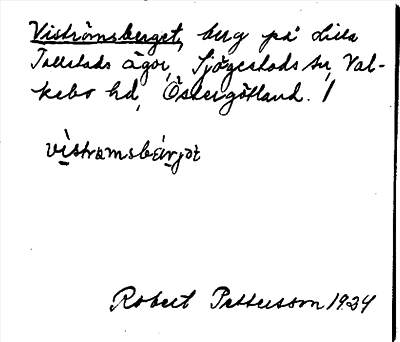 Viströmsberget, berg på Lilla
Tollstads ägor, Sjögestads sn, Val-
kebo hd, Östergötland. /
vistramsbärjət
Robert Pettersson 1934